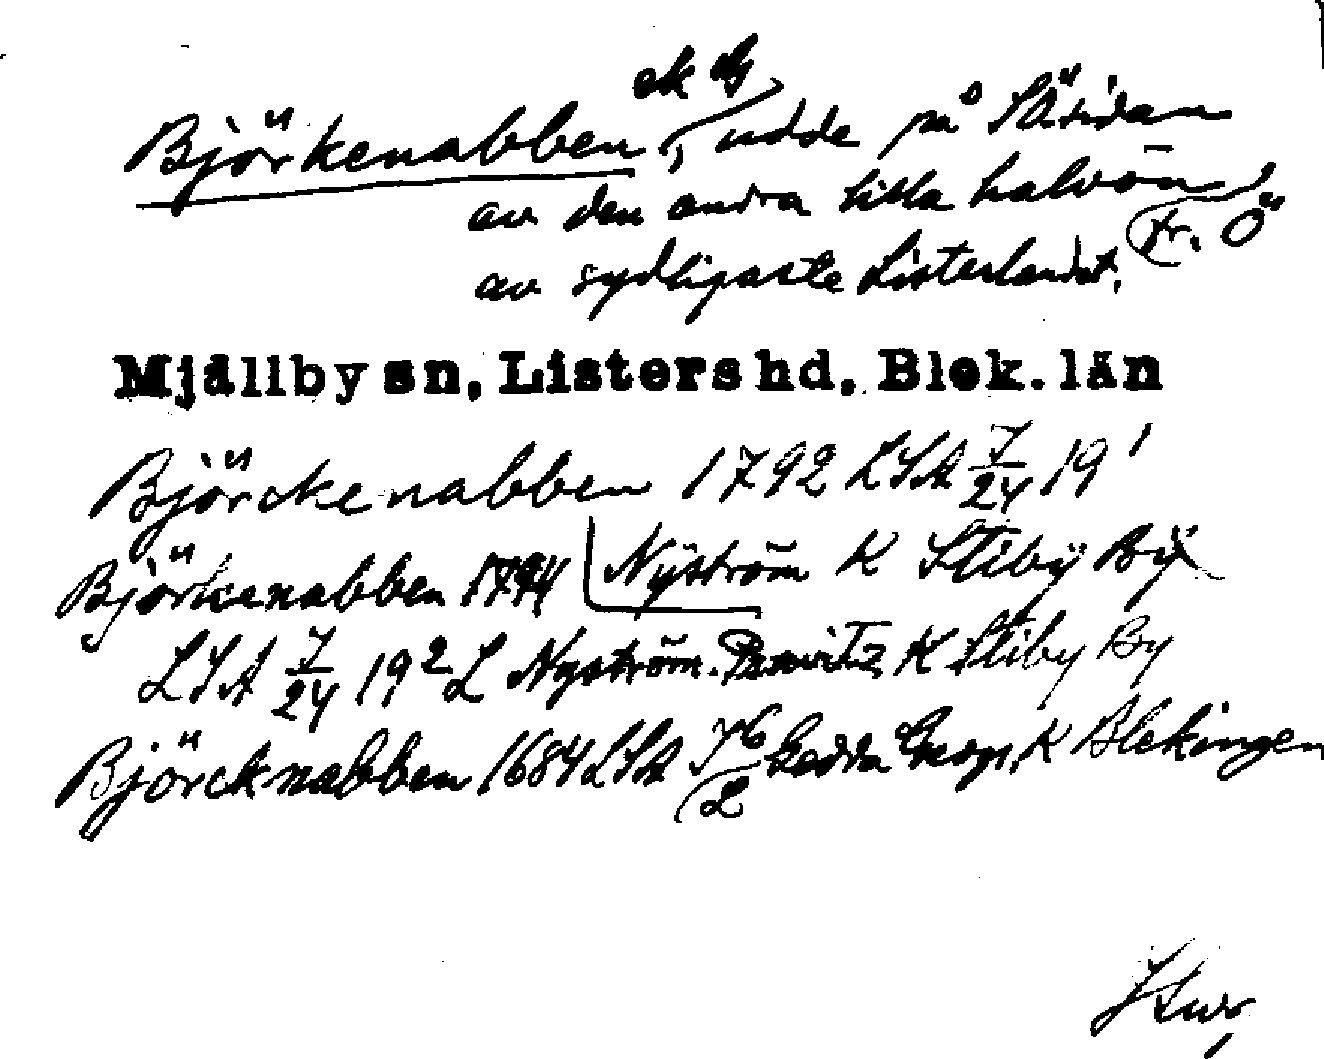 ek bg
Björkenabben, udde på SÖsidan
av den andra lilla halvön
(fr. Ö
av sydligaste Listerlandet.
Mjällby sn, Listers hd. Blek. län
Björckenabben 1792 LSA J/24 19 1
Björkenabben 1794 Nyström K Stiby By
LSA J/24 19 2 L Nyström. K Stiby By
Björcknabben 1684 LSA K Blekingen